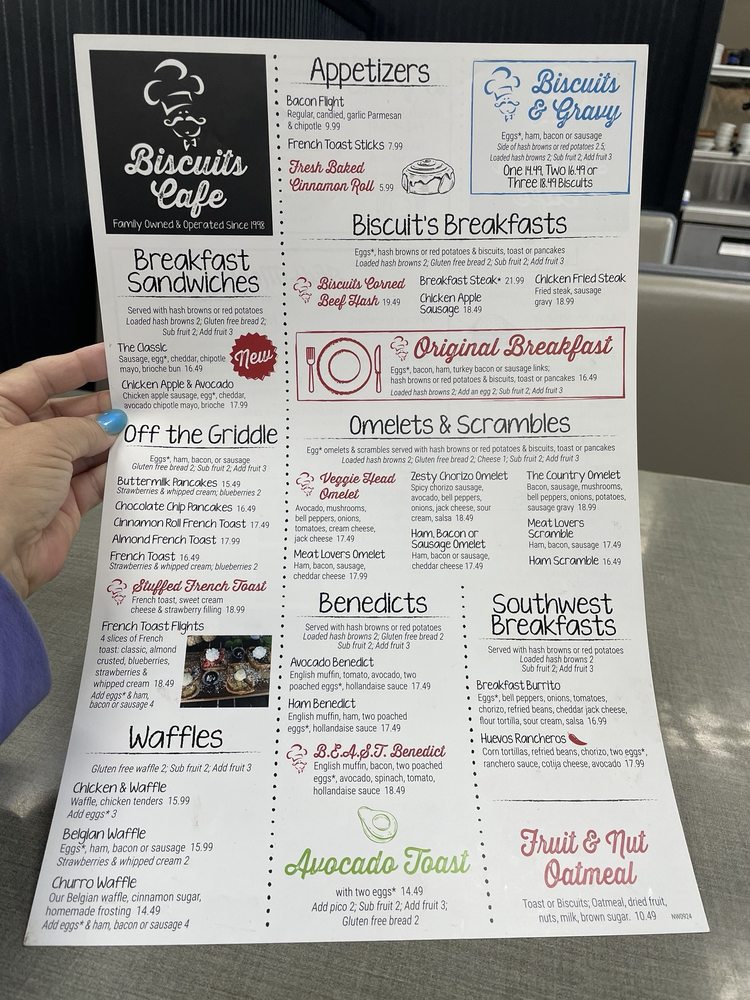 Biscuits
Cafe
Family Owned & Operated Since 1998
Breakfast
Sandwiches
Served with hash browns or red potatoes
Loaded hash browns 2; Gluten free bread 2;
Sub fruit 2; Add fruit 3
The Classic
Sausage, egg*, cheddar, chipotle
mayo, brioche bun 16.49
New
Chicken Apple & Avocado
Chicken apple sausage, egg*, cheddar,
avocado chipotle mayo, brioche 17.99
Off the Griddle
Eggs*, ham, bacon, or sausage
Gluten free bread 2; Sub fruit 2; Add fruit 3
Buttermilk Pancakes 15.49
Strawberries & whipped cream; blueberries 2
Chocolate Chip Pancakes 16.49
Cinnamon Roll French Toast 17.49
Almond French Toast 17.99
French Toast 16.49
Strawberries & whipped cream; blueberries 2
Stuffed French Toast
French toast, sweet cream
cheese & strawberry filling 18.99
French Toast Flights
4 slices of French
toast: classic, almond
crusted, blueberries,
strawberries &
whipped cream 18.49
Add eggs* & ham,
bacon or sausage 4
Waffles
Gluten free waffle 2; Sub fruit 2; Add fruit 3
Chicken & Waffle
Waffle, chicken tenders 15.99
Add eggs* 3
Belgian Waffle
Eggs*, ham, bacon or sausage 15.99
Strawberries & whipped cream 2
Churro Waffle
Our Belgian waffle, cinnamon sugar,
homemade frosting 14.49
Add eggs* & ham, bacon or sausage 4
Appetizers
Bacon Flight
Regular, candied, garlic Parmesan
& chipotle 9.99
French Toast Sticks 7.99
Fresh Baked
Cinnamon Roll 5.99
Biscuits
& Gravy
Eggs*, ham, bacon or sausage
Side of hash browns or red potatoes 2.5,
Loaded hash browns 2; Sub fruit 2; Add fruit 3
One 14.49, Two 16.49 or
Three 18.49 Biscuits
Biscuit's Breakfasts
Eggs*, hash browns or red potatoes & biscuits, toast or pancakes
Loaded hash browns 2; Gluten free bread 2; Sub fruit 2; Add fruit 3
Biscuits Corned
Beef Hash 19.49
Breakfast Steak* 21.99
Chicken Apple
Sausage 18.49
Chicken Fried Steak
Fried steak, sausage
gravy 18.99
Original Breakfast
Eggs*, bacon, ham, turkey bacon or sausage links;
hash browns or red potatoes & biscuits, toast or pancakes 16.49
Loaded hash browns 2; Add an egg 2; Sub fruit 2; Add fruit 3
Omelets & Scrambles
Egg* omelets & scrambles served with hash browns or red potatoes & biscuits, toast or pancakes
Loaded hash browns 2; Gluten free bread 2, Cheese 1; Sub fruit 2; Add fruit 3
Veggie Head
Omelet
Avocado, mushrooms,
bell peppers, onions,
tomatoes, cream cheese,
jack cheese 17.49
Meat Lovers Omelet
Ham, bacon, sausage,
cheddar cheese 17.99
Zesty Chorizo Omelet
Spicy chorizo sausage,
avocado, bell peppers,
onions, jack cheese, sour
cream, salsa 18.49
Ham, Bacon or
Sausage Omelet
Ham, bacon or sausage,
cheddar cheese 17.49
The Country Omelet
Bacon, sausage, mushrooms,
bell peppers, onions, potatoes,
sausage gravy 18.99
Meat Lovers
Scramble
Ham, bacon, sausage 17.49
Ham Scramble 16.49
Benedicts
Served with hash browns or red potatoes
Loaded hash browns 2; Gluten free bread 2
Sub fruit 2; Add fruit 3
Avocado Benedict
English muffin, tomato, avocado, two
poached eggs*, hollandaise sauce 17.49
Ham Benedict
English muffin, ham, two poached
eggs*, hollandaise sauce 17.49
B.E.A.S.T. Benedict
English muffin, bacon, two poached
eggs*, avocado, spinach, tomato,
hollandaise sauce 18.49
Avocado Toast
with two eggs* 14.49
Add pico 2; Sub fruit 2; Add fruit 3;
Gluten free bread 2
Southwest
Breakfasts
Served with hash browns or red potatoes
Loaded hash browns 2
Sub fruit 2; Add fruit 3
Breakfast Burrito
Eggs*, bell peppers, onions, tomatoes,
chorizo, refried beans, cheddar jack cheese,
flour tortilla, sour cream, salsa 16.99
Huevos Rancheros
Corn tortillas, refried beans, chorizo, two eggs*,
ranchero sauce, cotija cheese, avocado 17.99
Fruit & Nut
Oatmeal
Toast or Biscuits; Oatmeal, dried fruit,
nuts, milk, brown sugar. 10.49
NW0924